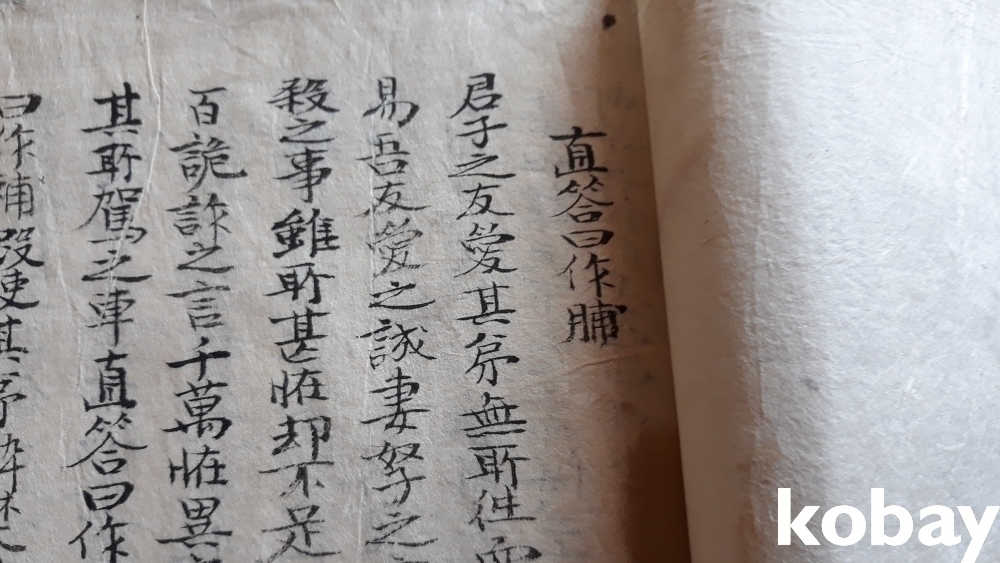 直答曰作脯
君子之友愛其弟無所往而
易吾友愛之誠妻孥之
殺之事雖所甚恠却不足
百詭詐之言千萬恠異
其所駕之車直答曰作
曰作脯設使其弟
kobay